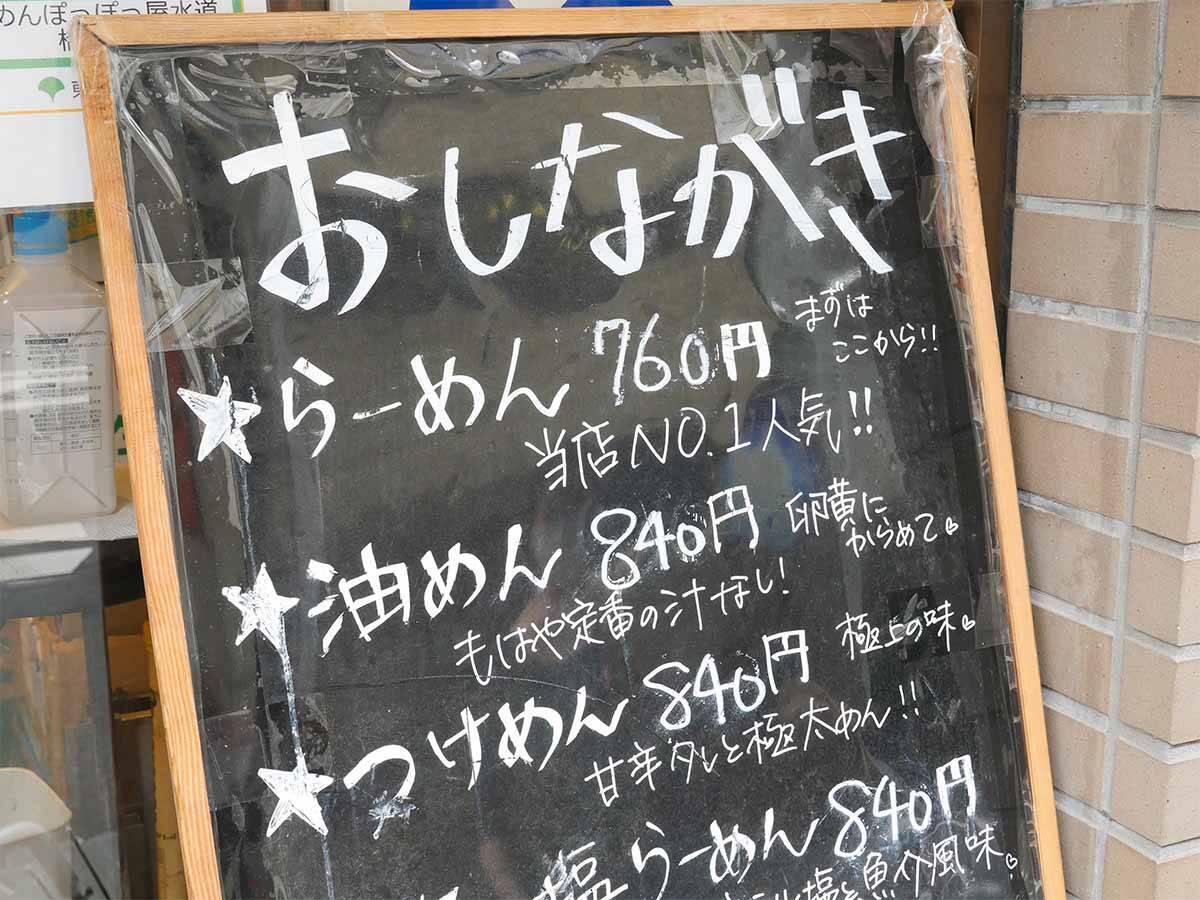 めんぽっぽっ屋水道
おしながき
★らーめん 760円 まずは
ここから!!
当店NO.1人気!!
★油めん 840円 卵黄に
からめて♡
もはや定番の汁なし!
★つけめん 840円 極上の味♡
甘辛タレと極太めん!!
塩らーめん 840円
塩と魚介風味♡